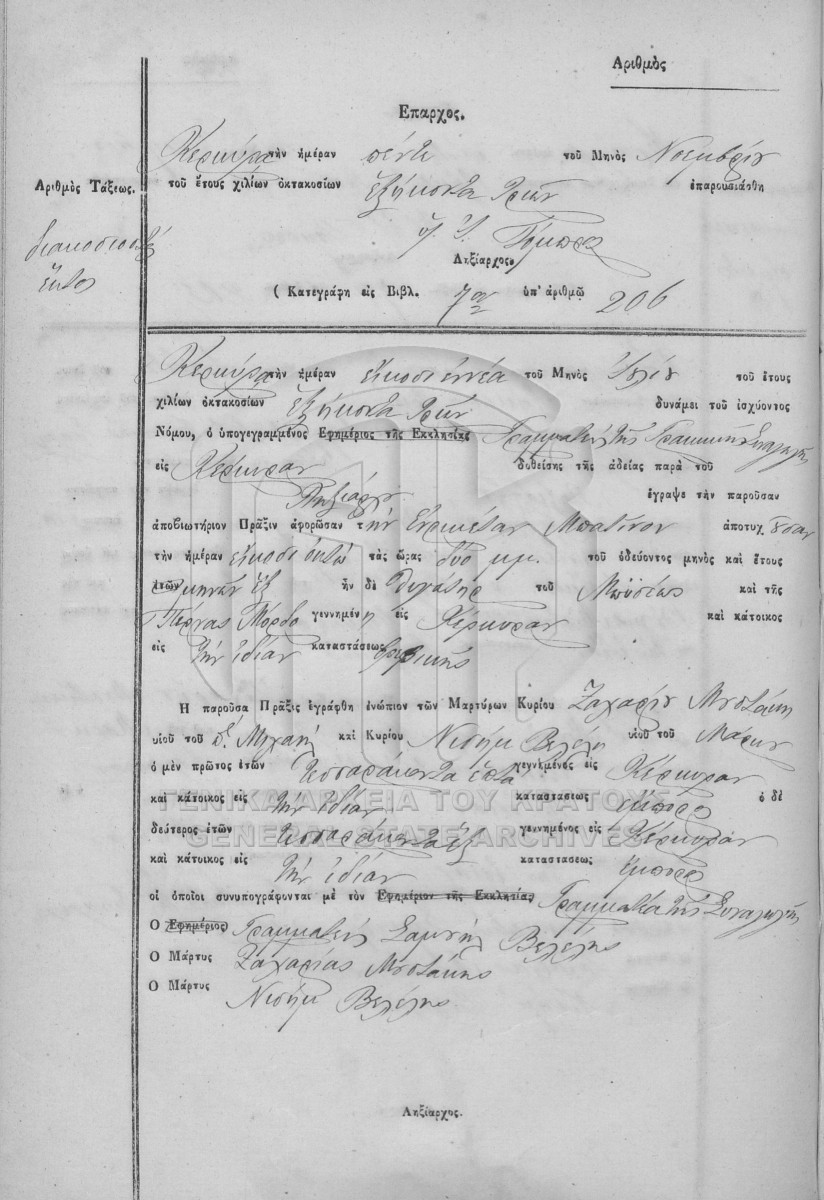 Αριθμὸς
Επαρχος.
Κερκύρα τὴν ἡμέραν πέντε τοῦ Μηνὸς Νοεμβρίου
Αριθμὸς Τάξεως.
τοῦ ἔτους χιλίων ὀκτακοσίων ἑξήκοντα τριῶν ἐπαρουσιάσθη
διακοσιοστὸς
ἕκτος
Ληξίαρχος
( Κατεγράφη εἰς Βιβλ. 7ον ὑπ' ἀριθμῷ 206
Κερκύρα τὴν ἡμέραν εἴκοσι ἐννέα τοῦ Μηνὸς Ἰουλίου τοῦ ἔτους
χιλίων ὀκτακοσίων ἑξήκοντα τριῶν δυνάμει τοῦ ἰσχύοντος
Νόμου, ὁ ὑπογεγραμμένος Εφημέριος τῆς Εκκλησίας Γραμματεὺς τῆς Γραικικῆς Συναγωγῆς
εἰς Κέρκυραν δοθείσης τῆς ἀδείας παρὰ τοῦ
Ληξιάρχου ἔγραψε τὴν παροῦσαν
ἀποβιωτήριον Πρᾶξιν ἀφορῶσαν τὴν Ἐνρικέταν Μπατίνον ἀποτυχοῦσαν
τὴν ἡμέραν εἴκοσι ὀκτὼ τὰς ὥρας δύο μμ. τοῦ ὁδεύοντος μηνὸς καὶ ἔτους
ἐτῶν μηνῶν ἓξ ἦν δὲ θυγάτηρ τοῦ Μωϋσέως καὶ τῆς
Πέρνας Μόρδο γεννημένη εἰς Κέρκυραν καὶ κάτοικος
εἰς τὴν ἰδίαν καταστάσεως
Η παροῦσα Πρᾶξις ἐγράφθη ἐνώπιον τῶν Μαρτύρων Κυρίου Ζαχαρίου Μποτάκη
υἱοῦ τοῦ π. Μιχαὴλ καὶ Κυρίου Νισὴμ Βελέλη υἱοῦ τοῦ Μάρκου
ὁ μὲν πρῶτος ἐτῶν τεσσαράκοντα ἑπτὰ γεγνημένος εἰς Κέρκυραν
καὶ κάτοικος εἰς τὴν ἰδίαν καταστασεως ἔμπορος ὁ δὲ
δεύτερος ἐτῶν τεσσαράκοντα ἓξ γεννημένος εἰς Κέρκυραν
καὶ κάτοικος εἰς τὴν ἰδίαν καταστασεως ἔμπορος
οἱ ὁποῖοι συνυπογράφονται μὲ τὸν Εφημέριον τῆς Εκκλησίας Γραμματέα τῆς Συναγωγῆς
Ο Εφημέριος Γραμματεὺς Σαμουὴλ Βελέλης
Ο Μάρτυς Ζαχαρίας Μποτάκης
Ο Μάρτυς Νισὴμ Βελέλης
Ληξίαρχος.
ΓΕΝΙΚΑ ΑΡΧΕΙΑ ΤΟΥ ΚΡΑΤΟΥΣ
GENERAL STATE ARCHIVES